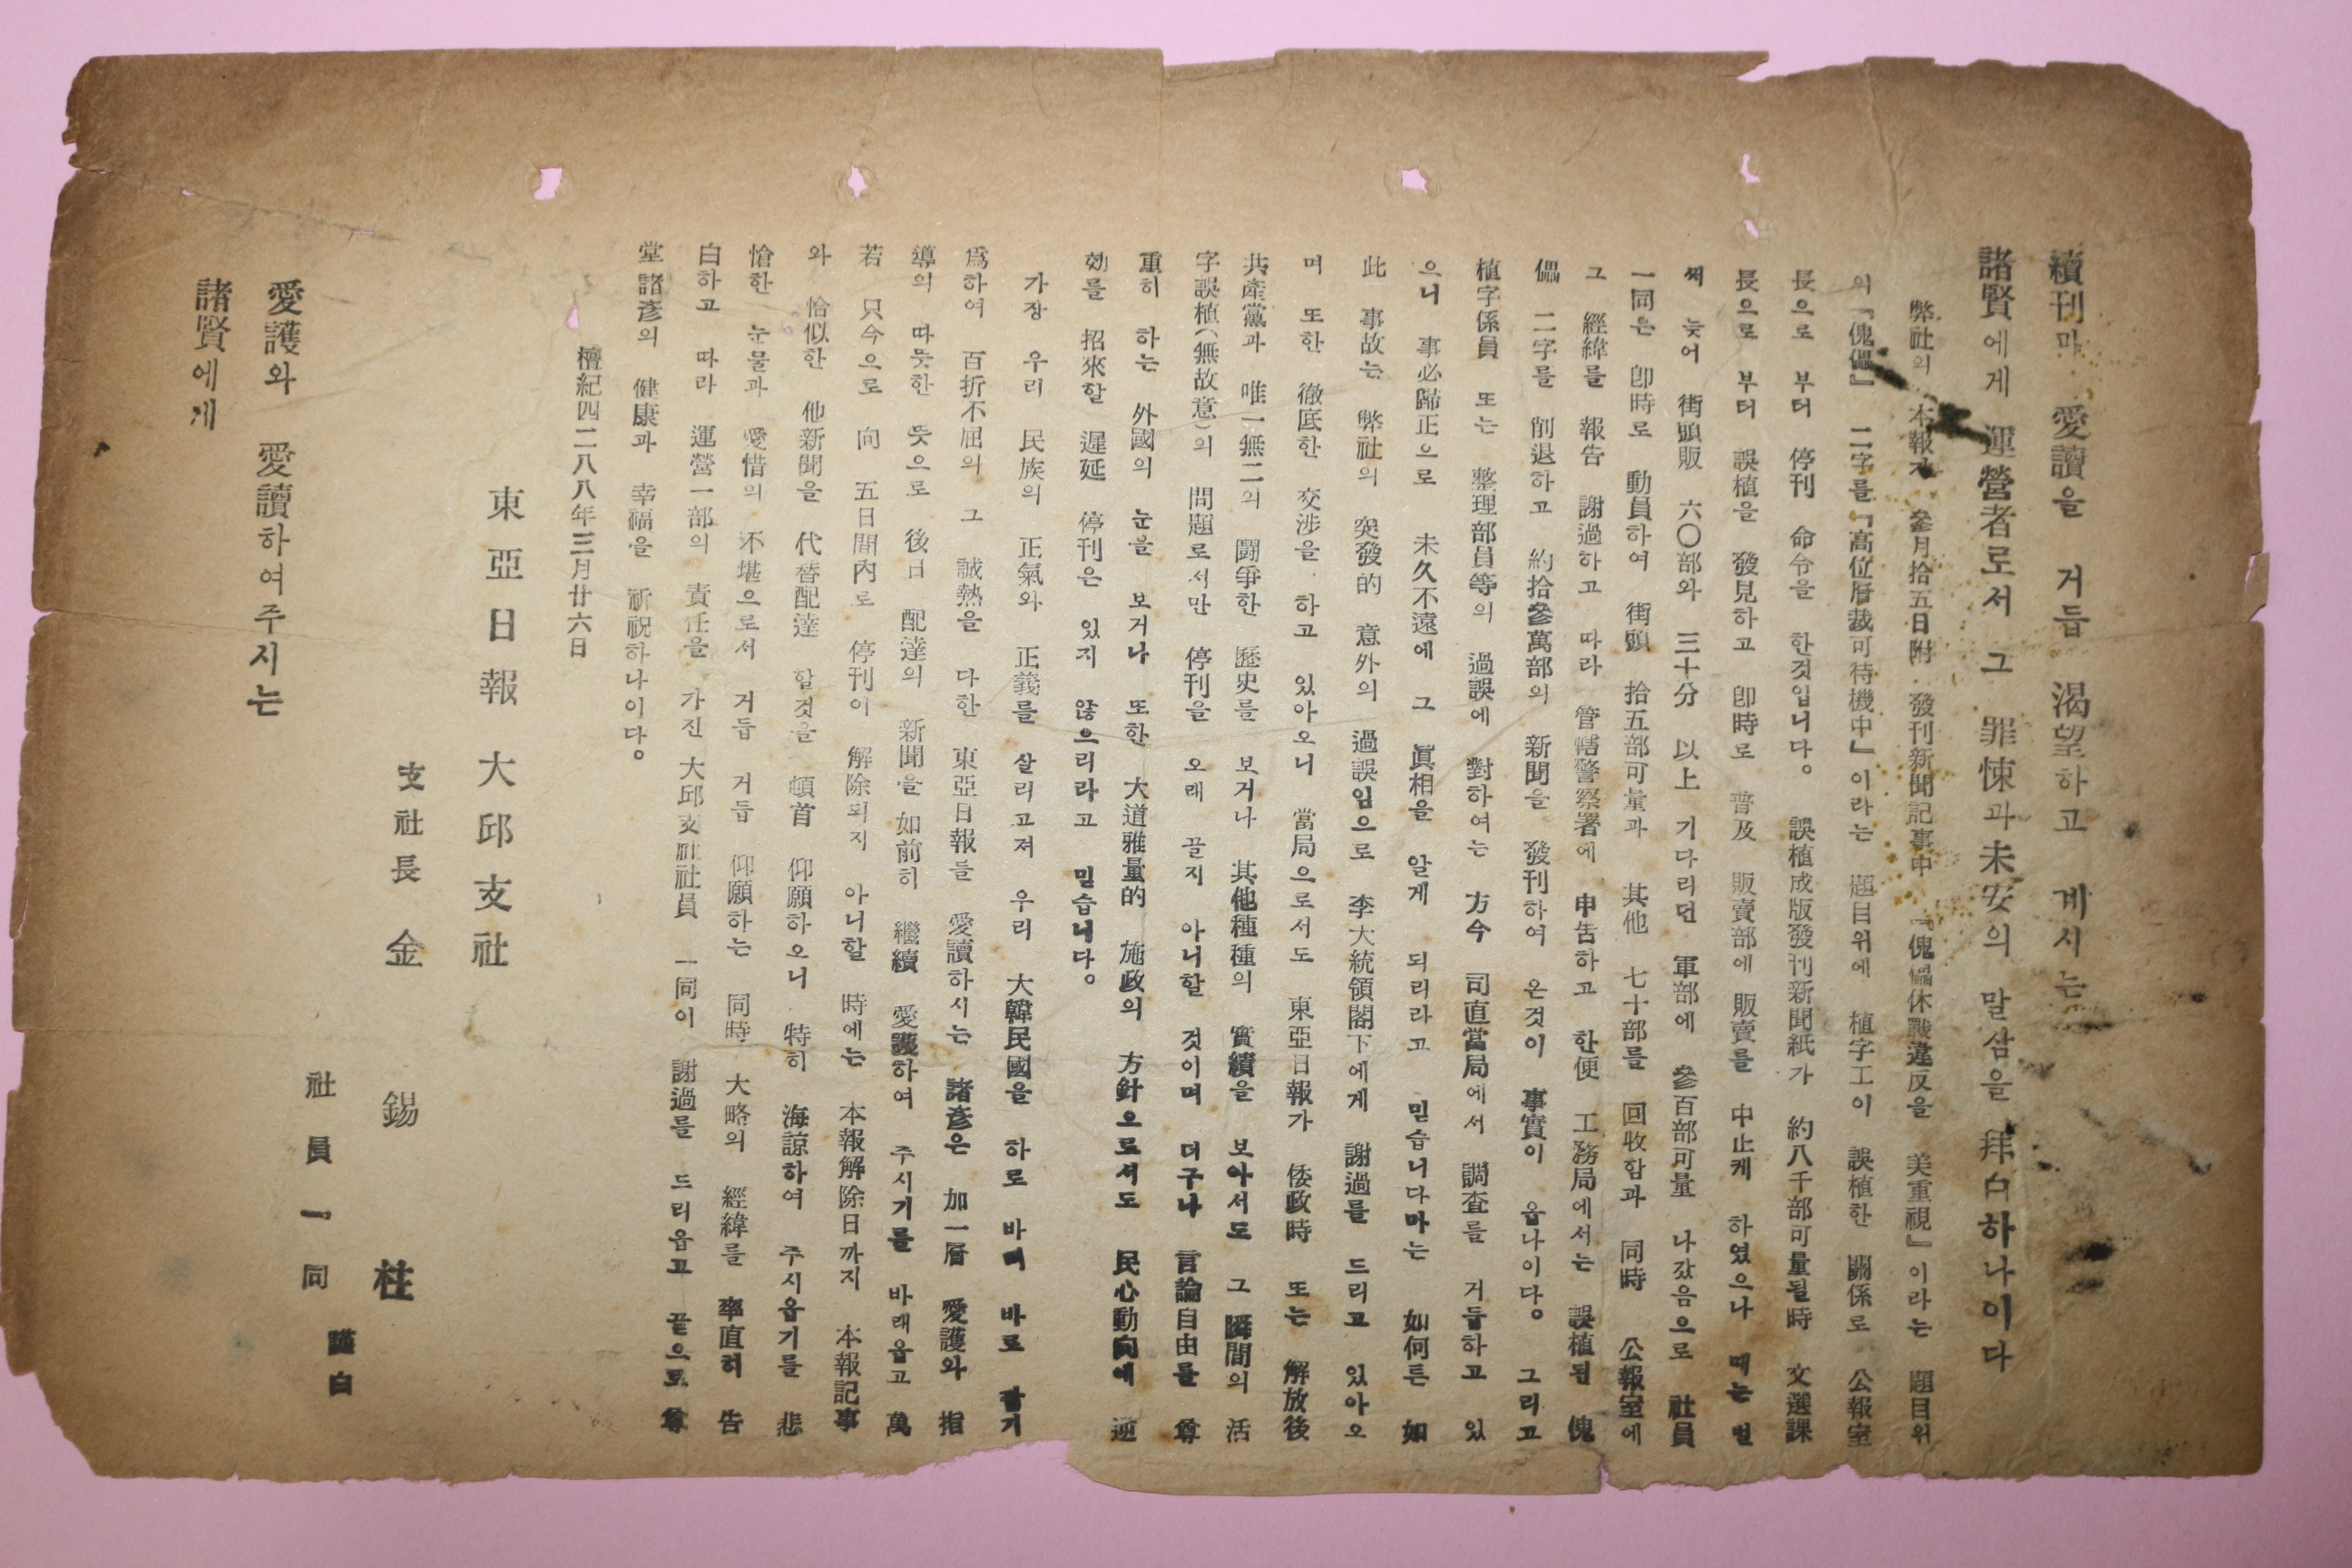 續刊과 愛讀을 거듭 渴望하고 계시는
諸賢에게 運營者로서 그 罪悚과 未安의 말삼을 拜白하나이다
弊社의 本報가 參月拾五日附 發刊新聞記事中 『傀儡休戰違反을 美重視』이라는 題目위
의 『傀儡』 二字를 『高位層裁可待機中』이라는 題目위에 植字工이 誤植한 關係로 公報室
長으로 부터 停刊 命令을 한것입니다。 誤植成版發刊新聞紙가 約八千部可量될時 文選課
長으로 부터 誤植을 發見하고 卽時로 普及 販賣部에 販賣를 中止케 하였으나 때는 벌
써 늦어 街頭販 六〇部와 三十分 以上 기다리던 軍部에 參百部可量 나갔음으로 社員
一同은 卽時로 動員하여 街頭 拾五部可量과 其他 七十部를 回收함과 同時 公報室에
그 經緯를 報告 謝過하고 따라 管轄警察署에 申告하고 한便 工務局에서는 誤植된 傀
儡 二字를 削退하고 約拾參萬部의 新聞을 發刊하여 온것이 事實이 옵나이다。 그리고
植字係員 또는 整理部員等의 過誤에 對하여는 方今 司直當局에서 調査를 거듭하고 있
으니 事必歸正으로 未久不遠에 그 眞相을 알게 되리라고 믿습니다마는 如何튼 如
此 事故는 弊社의 突發的 意外의 過誤임으로 李大統領閣下에게 謝過를 드리고 있아오
며 또한 徹底한 交涉을 하고 있아오니 當局으로서도 東亞日報가 倭政時 또는 解放後
共產黨과 唯一無二의 鬪爭한 歷史를 보거나 其他種種의 實績을 보아서도 그 瞬間의 活
字誤植(無故意)의 問題로서만 停刊을 오래 끌지 아니할 것이며 더구나 言論自由를 尊
重히 하는 外國의 눈을 보거나 또한 大道雅量的 施政의 方針으로서도 民心動向에 逆
効를 招來할 遲延 停刊은 있지 않으리라고 믿습니다。
가장 우리 民族의 正氣와 正義를 살리고저 우리 大韓民國을 하로 바삐 바로 잡기
爲하여 百折不屈의 그 誠熱을 다한 東亞日報를 愛讀하시는 諸彦은 加一層 愛護와 指
導의 따뜻한 뜻으로 後日 配達의 新聞을 如前히 繼續 愛護하여 주시기를 바래옵고 萬
若 只今으로 向 五日間內로 停刊이 解除되지 아니할 時에는 本報解除日까지 本報記事
와 恰似한 他新聞을 代替配達 할것을 頓首 仰願하오니 特히 海諒하여 주시옵기를 悲
愴한 눈물과 愛惜의 不堪으로서 거듭 거듭 仰願하는 同時 大略의 經緯를 率直히 告
白하고 따라 運營一部의 責任을 가진 大邱支社社員 一同이 謝過를 드리옵고 끝으로 尊
堂 諸彦의 健康과 幸福을 祈祝하나이다。
檀紀四二八八年三月廿六日
東亞日報 大邱支社
支社長 金錫柱
社員一同
謹白
愛護와 愛讀하여주시는
諸賢에게